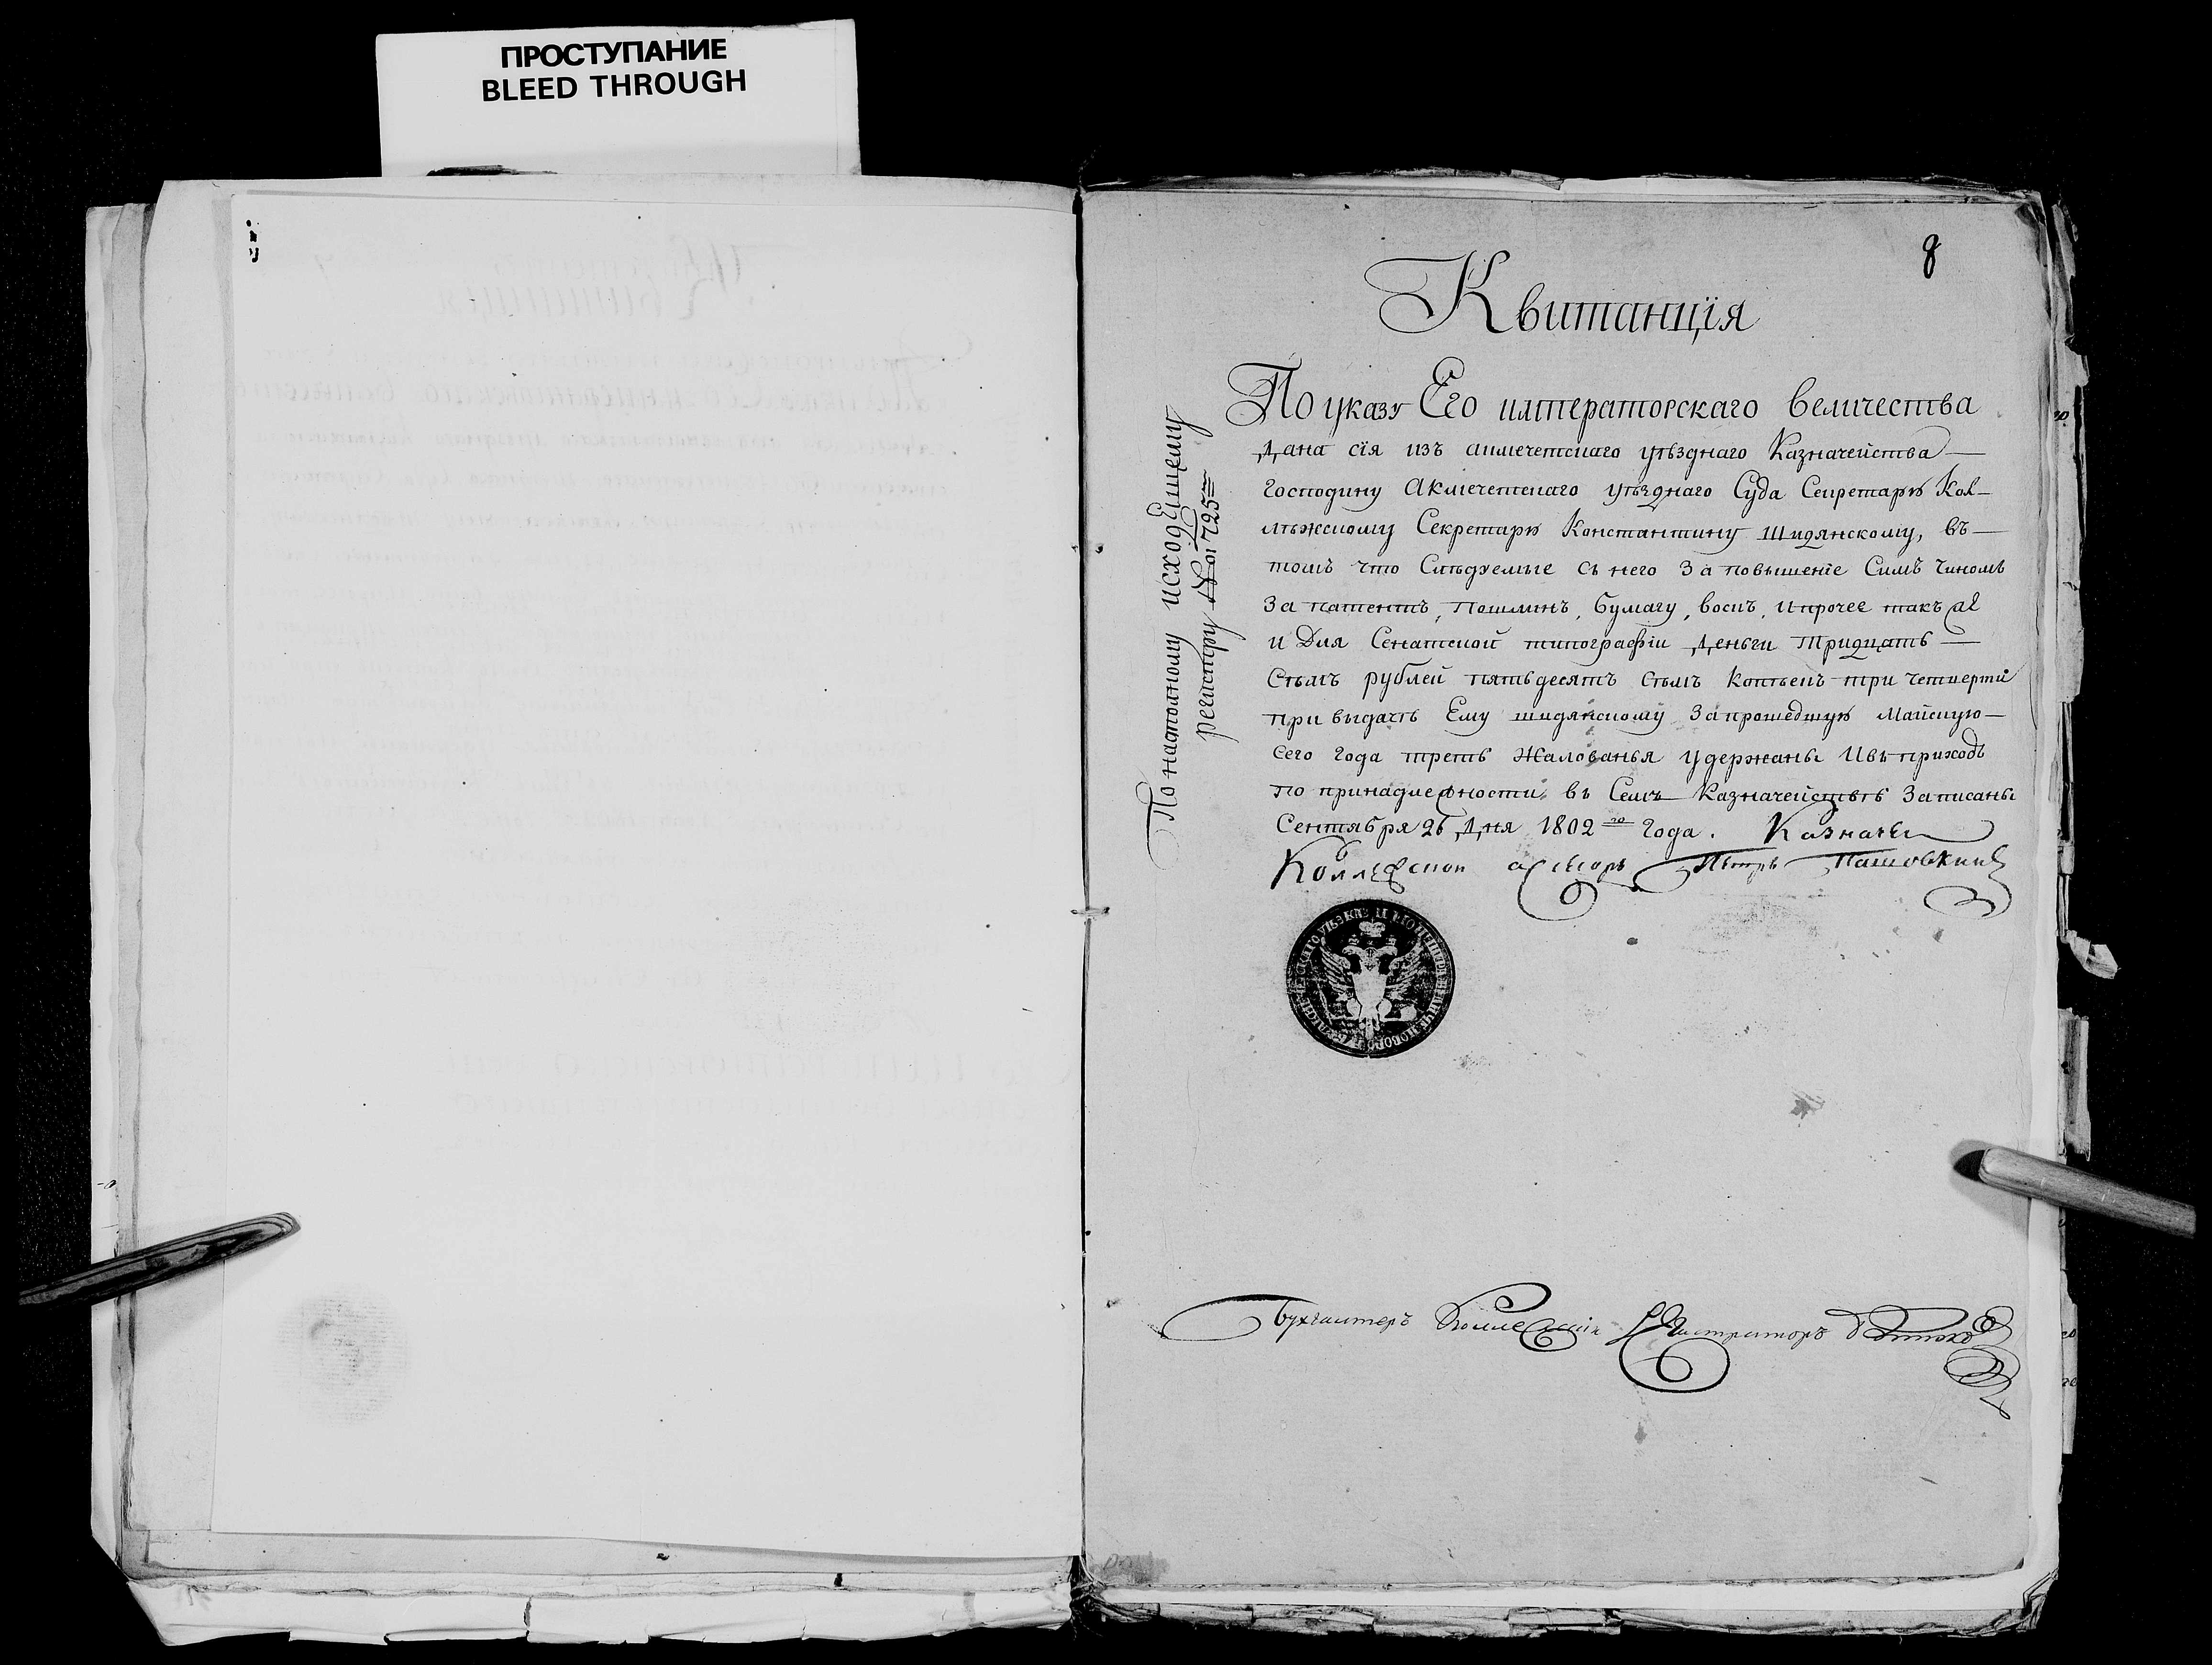 ПРОСТУПАНИЕ
BLEED THROUGH
8
Квитанцїя
По указу Его императорскаго величества
Дана сїя изъ акмечетскаго уѣзднаго Казначейства
Господину Акмечетскаго уѣзднаго Суда Секретарю Кол-
лѣжскому Секретарю Константину Шидянскому, въ
томъ что Слѣдуемые съ него За повышенїе Симъ Чиномъ
За патентъ, пошлинъ, бумагу, воскъ, и прочее такъ же
и Для Сенатской типографїи Деньги Тридцать
Сѣмъ рублей пятьдесятъ сѣмъ Копѣекъ три четверти
при выдачѣ Ему шидянскому За прошедшую Майскую
сего года треть Жалованья удержаны И въ приходъ
по принадлежности въ Семъ Казначействѣ Записаны
Сентября 26 Дня 1802го года. Казначеи
Коллежской асесоръ Петръ
По настолному исходящему
регистру № 1725
Бухгалтеръ Колле Регистраторъ